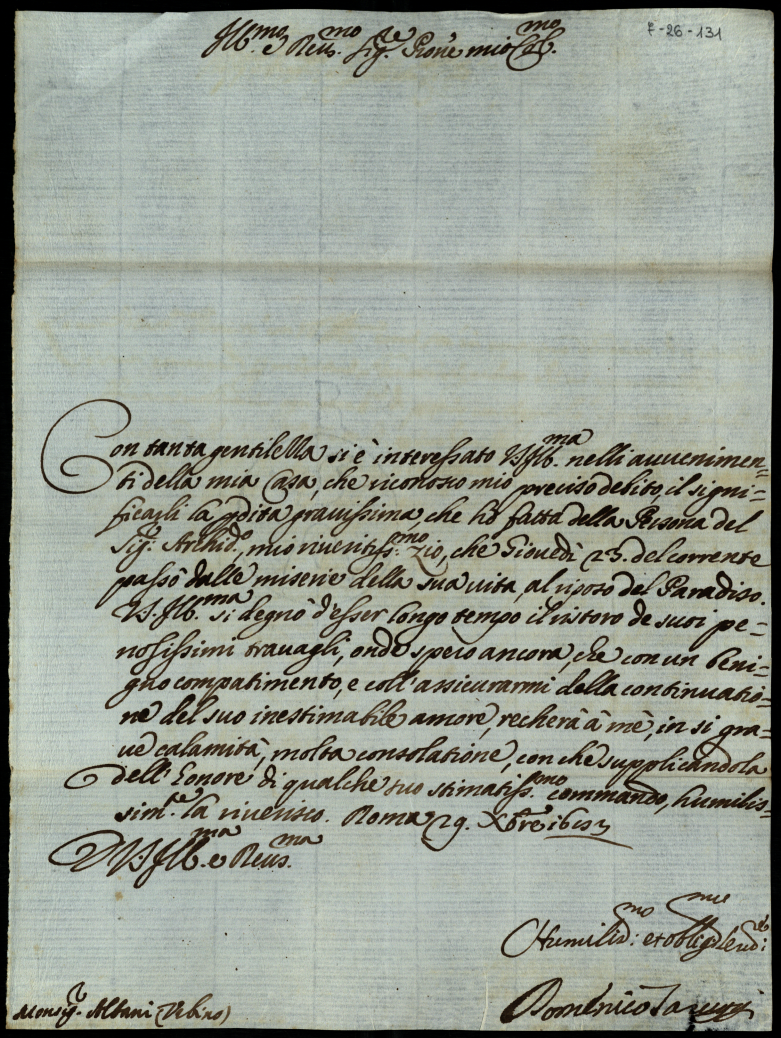 7-26-131
Ill.mo e Reu.mo Sig.re Prone mio Col.mo
Con tanta gentilezza si è interessato V.S.Ill.ma nelli auuenimen=
ti della mia Casa, che riconosco mio preciso debito, il signi=
ficarli la pdita grauissima, che hò fatta della Persona del
Sig. Archid.o, mio riueritiss.mo zio, che Giouedì 23. del corrente
passò dalle miserie della sua uita, al riposo del Paradiso.
V.S.Ill.ma si degnò d'esser longo tempo il ristoro de suoi pe=
nosissimi trauagli, onde spero ancora, che con un beni=
gno compatimento, e coll'assicurarmi della continuatio=
ne del suo inestimabile amore, recherà à mè, in si gra=
ue calamità, molta consolatione, con che supplicandola
dell'honore di qualche suo stimatiss.mo commando, humilis=
sim.te la riuerisco. Roma 29. Xbre
D V.S.Ill.ma e Reu.ma
Humiliss.mo et oblig.
Domenico
Monsig.r Albani (Urbino)